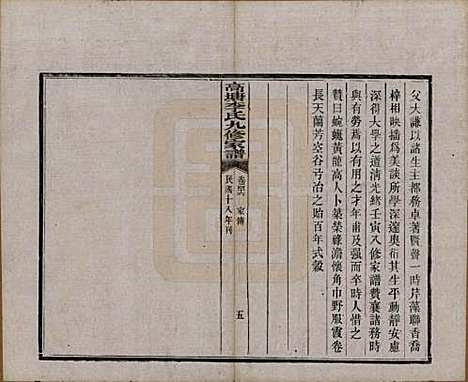 父大謙以諸生主都務卓著賢聲一時芹藻聯香喬
梓相映播為美談所學深邃奧衍其生平動靜安慮
深得大學之道清光緒壬寅八修家譜贊襄諸務時
與有勞焉以有用之才年甫及强而卒時人惜之
贊曰蜿蜒黄龍高人卜築榮祿澹懷角巾野服霞卷
長天蘭芳空谷弓冶之貽百年式穀
高塘李氏九修家譜
家傳
五
民國十八年刊